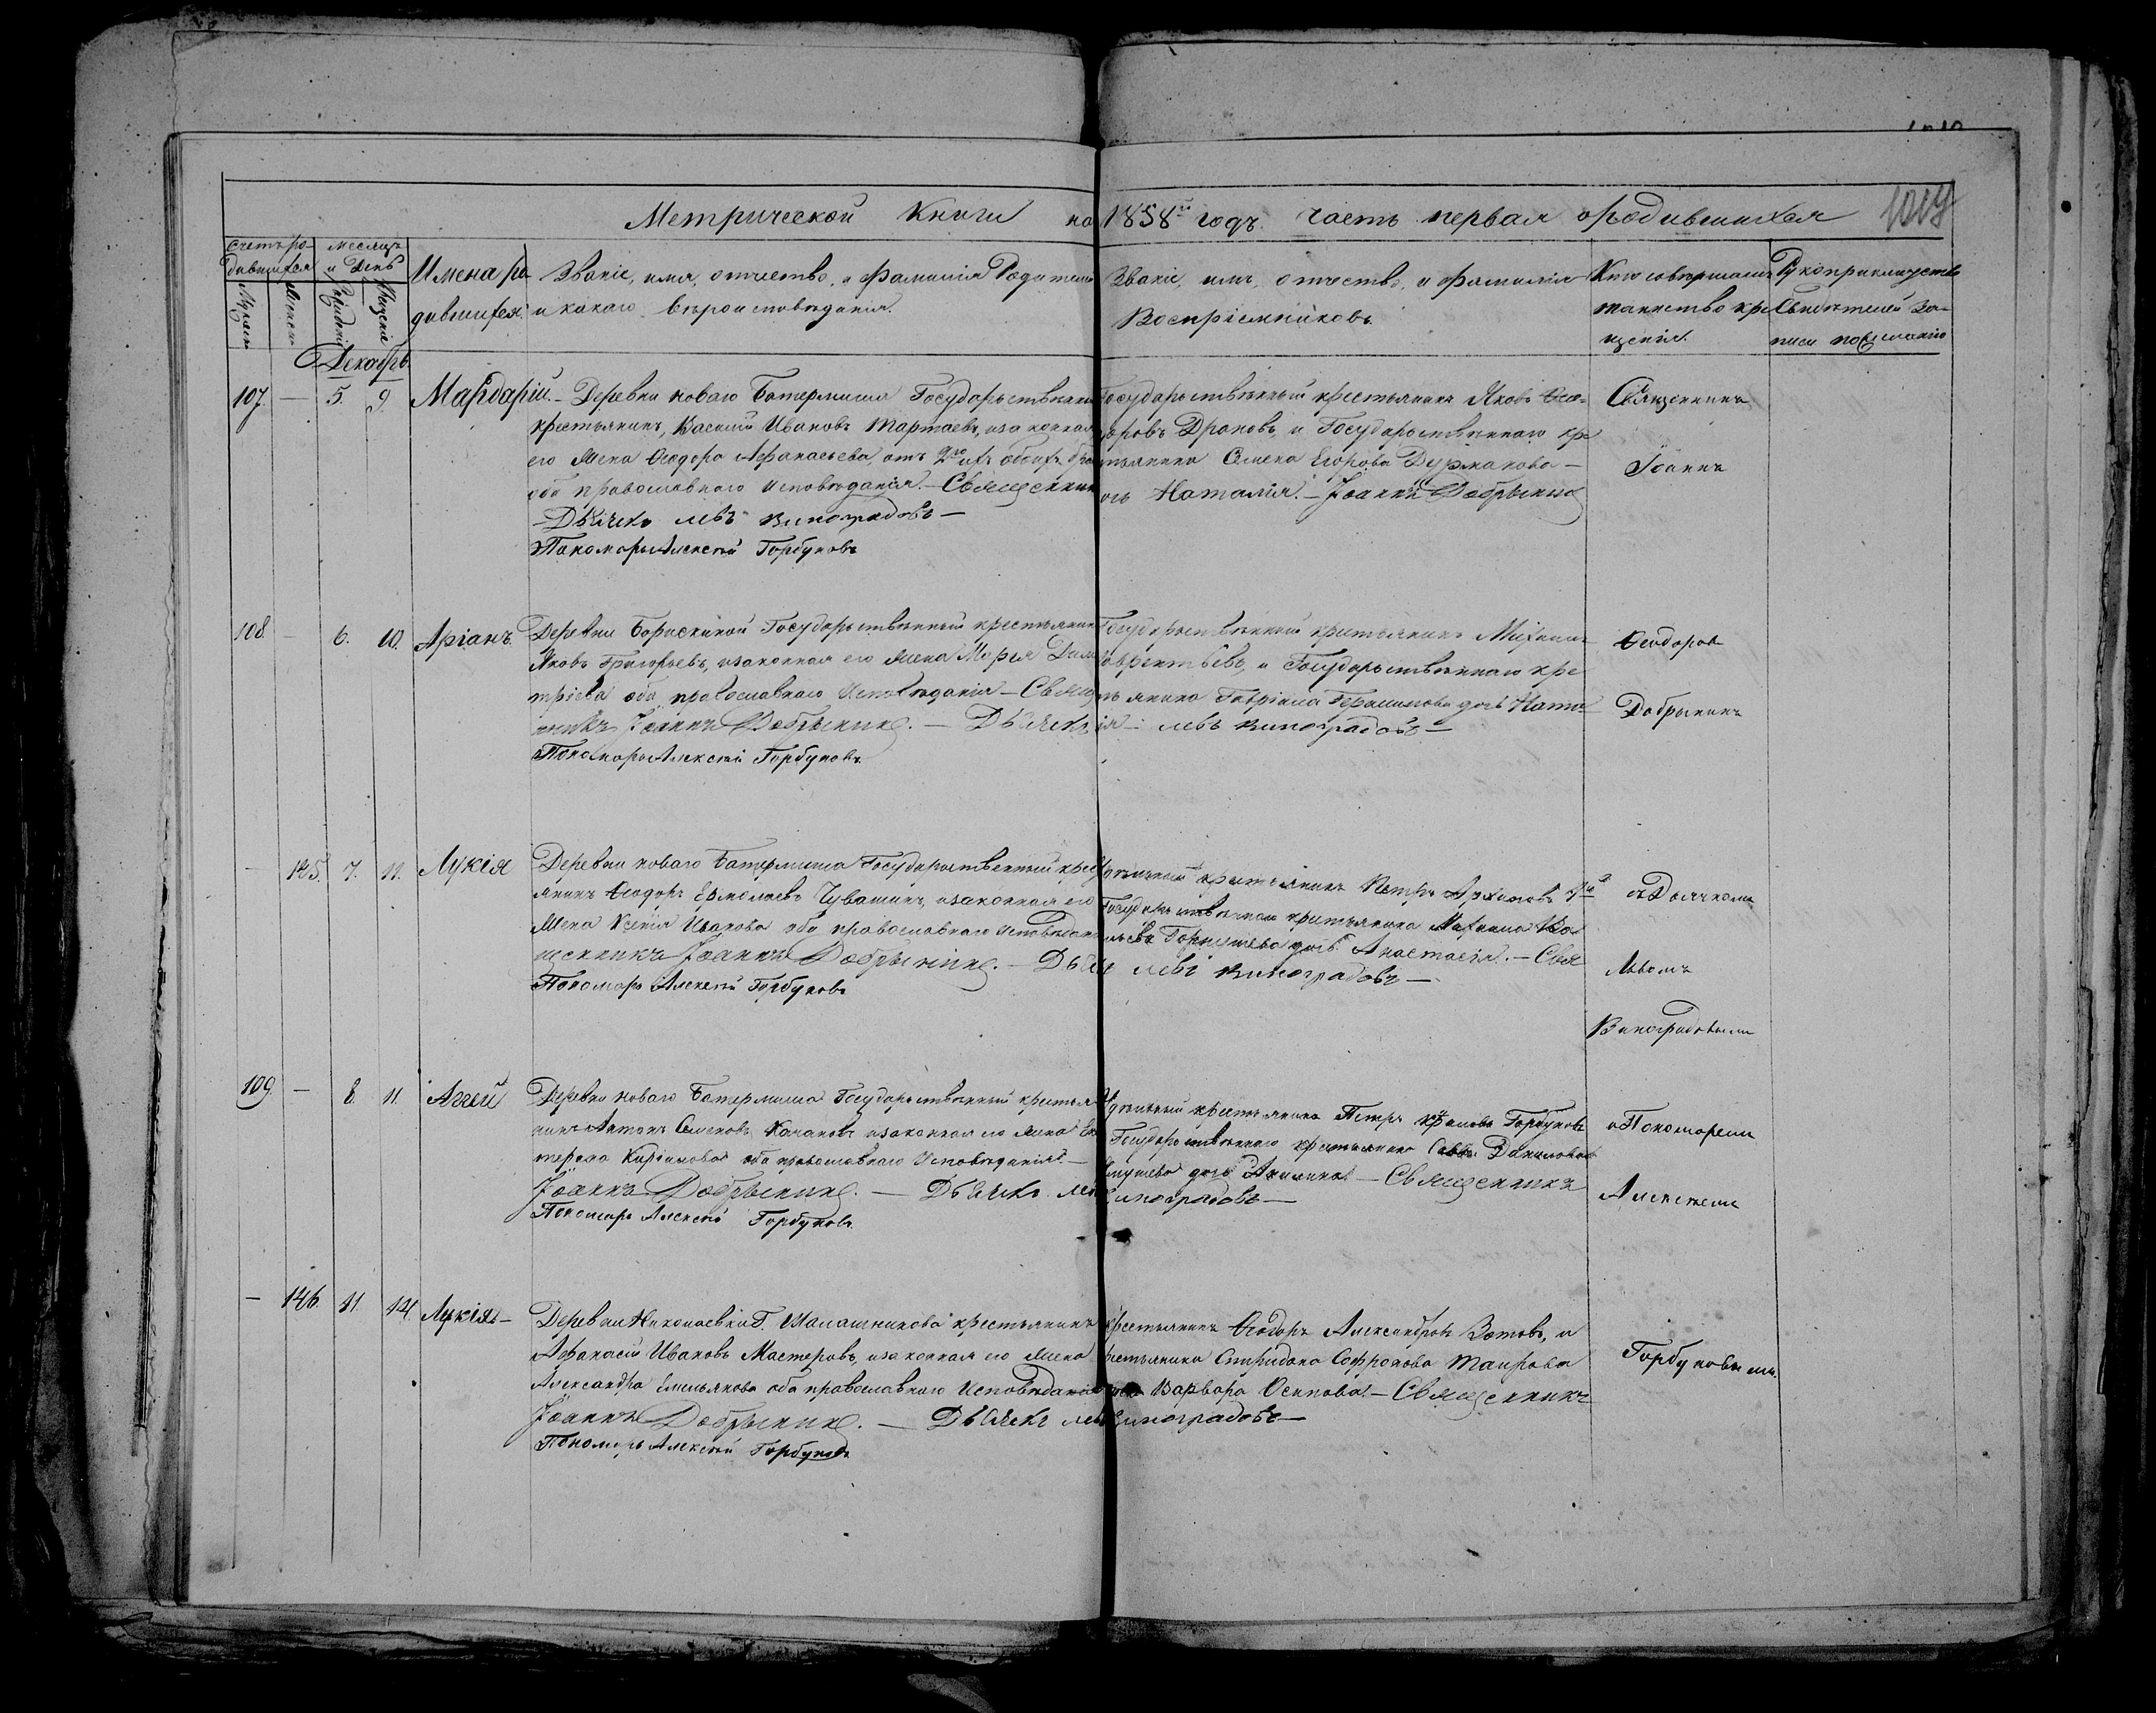 Метрической Книги на 1858й годъ. часть первая о родившихся 1019
Счетъ ро-
дившихся
Мужеск
Женск
Месяцъ
и День
Рожденія
Крещенія
Имена ро
дившихся.
Званіе, имя, отчество, и фамилія Родителей
и какаго вероисповѣданія.
Званіе, имя, отчество, и фамилія
Воспріемниковъ.
Кто совершалъ
таинство кре
щенія.
Рукоприкладство
Свидѣтелей за-
писи по желанію
Декабрь.
107. — 5. 9. Мардарій. — Деревни новаго Батермиша Государственный
крестьянинъ, Василій Ивановъ Тартаевъ, и законная
его жена Ѳеодора Афанасьева, отъ 2го ихъ обоихъ брака
оба православнаго исповѣданія. — Священникъ
— Дьячекъ Левъ Виноградовъ —
Пономарь Алексѣй Горбуновъ
Государственный крестьянинъ Яковъ Ѳео-
доровъ Драновъ, и Государственнаго кре
стьянина Семена Егорова Дурманова —
дочь Наталія. — Іоаннъ Добрынинъ
Священникъ
Іоаннъ
108. — 6. 10. Аріанъ. Деревни Борискиной Государственный крестьянин
Яковъ Григорьевъ, и законная его жена Марья Дими
тріева оба православнаго Исповѣданія — Священ
никъ Іоаннъ Добрынинъ. — Дьячекъ
Пономарь Алексѣй Горбуновъ.
Государственный крестьянинъ Михаилъ
Лаврентьевъ, и Государственнаго кре
стьянина Гавріила Герасимова дочь Ната
лія — Левъ Виноградовъ —
Ѳеодоровъ
Добрынинъ
— 145. 7. 11. Лукія Деревни новаго Батермиша Государственный крест
янинъ Ѳеодоръ Ермолаевъ Чувашинъ, и законная его
жена Ксенія Иванова оба православнаго исповѣдан
щенникъ Іоаннъ Добрынинъ. — Дьяч
Пономарь Алексѣй Горбуновъ
Удѣльный крестьянинъ Петръ Архиповъ
Государственнаго крестьянина Михаила
дочь Анастасія. — Свя
Левъ Виноградовъ —
съ Дьячкомъ
Львомъ
Виноградовымъ
109. — 8. 11. Аггей Деревни новаго Батермиша Государственный крестья
нинъ Антонъ Семеновъ Качановъ и законная его жена Ека
терина Кирилова оба православнаго Исповѣданія. —
Іоаннъ Добрынинъ. — Дьячекъ Левъ
Пономарь Алексѣй Горбуновъ.
Удѣльный крестьянинъ Петръ Горбуновъ
Государственнаго крестьянина Саввы Данилова
дочь Акилина — Священникъ
Виноградовъ —
и Пономаремъ
Алексѣемъ
— 146. 11. 14. Лукія — Деревни Николаевки Г. Шалашникова крестьянинъ
Афанасій Ивановъ Мастеровъ, и законная его жена
Александра Емельянова оба православнаго Исповѣданія
Іоаннъ Добрынинъ. — Дьячекъ Левъ
Пономарь Алексѣй Горбуновъ
Крестьянинъ Ѳеодоръ Александровъ Зотовъ, и
крестьянина Спиридона Софронова Таирова
жена Варвара Осипова. — Священникъ
Виноградовъ —
Горбуновымъ.